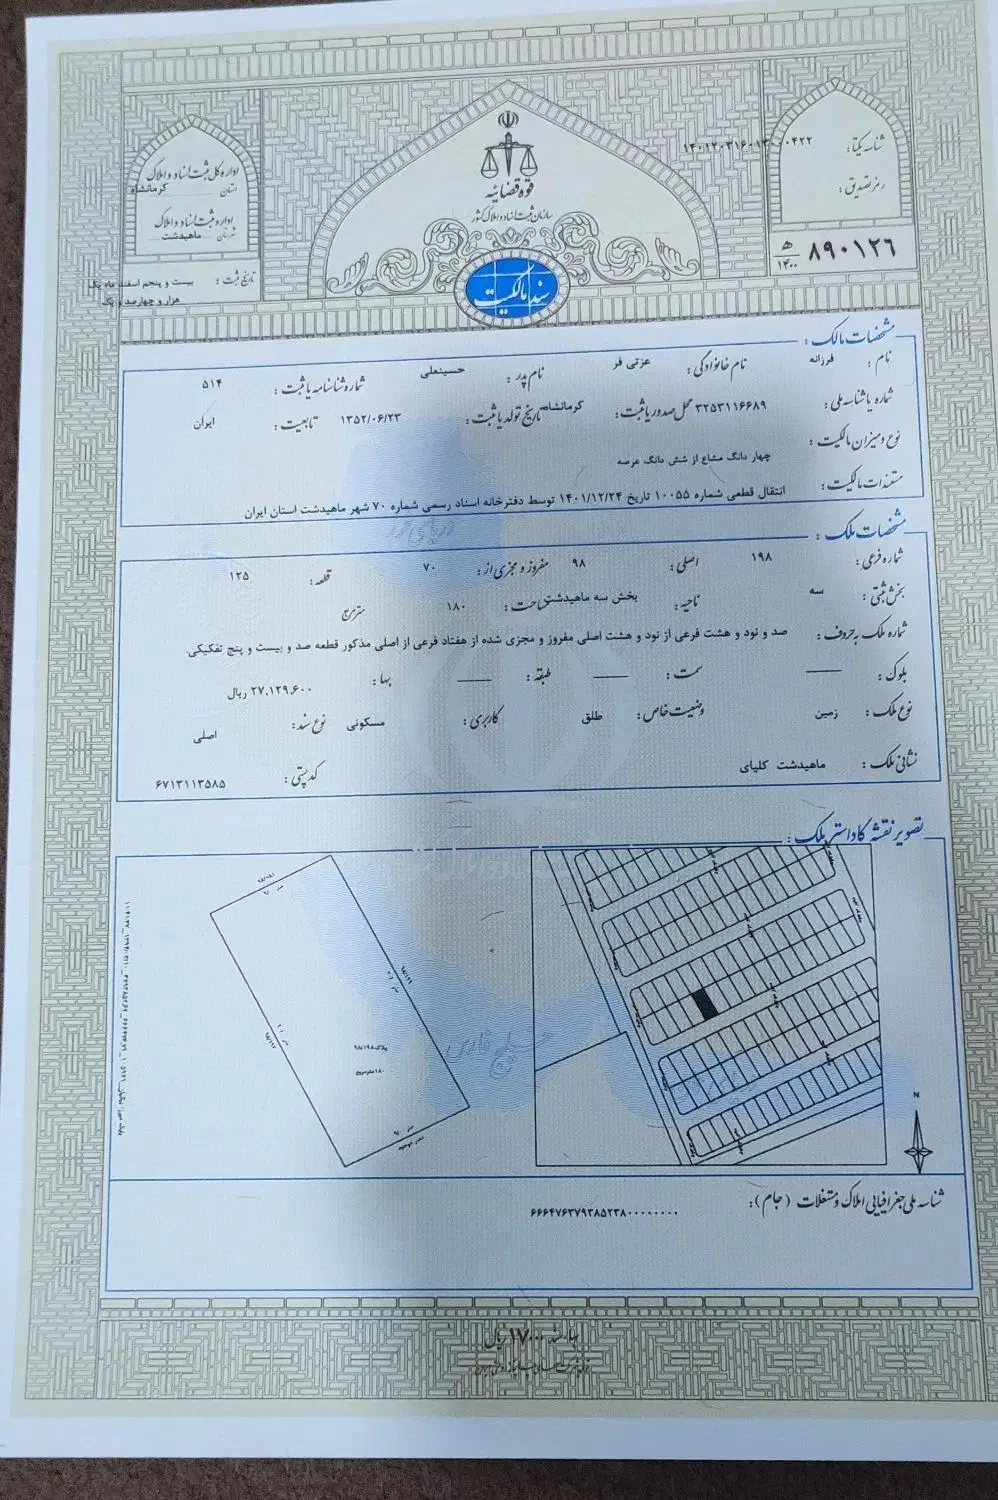 قوه قضائیه
سازمان ثبت اسناد و املاک کشور
سند مالکیت
شناسه یکتا:
رمز تصدیق:
۸۹۰۱۲۶ ه ۱۴۰۰
اداره کل ثبت اسناد و املاک
استان کرمانشاه
اداره ثبت اسناد و املاک
شهرستان ماهیدشت
تاریخ ثبت: بیست و پنجم اسفند ماه یک
هزار و چهارصد و یک
مشخصات مالک:
نام: فرزانه نام خانوادگی: عزتی فر نام پدر: حسینعلی شماره شناسنامه یا ثبت: ۵۱۴
شماره یا شناسه ملی: ۳۲۵۳۱۱۶۶۸۹ محل صدور یا ثبت: کرمانشاه تاریخ تولد یا ثبت: ۱۳۵۲/۰۶/۲۳ تابعیت: ایران
نوع و میزان مالکیت: چهار دانگ مشاع از شش دانگ عرصه
مستندات مالکیت: انتقال قطعی شماره ۱۰۰۵۵ تاریخ ۱۴۰۱/۱۲/۲۴ توسط دفترخانه اسناد رسمی شماره ۷۰ شهر ماهیدشت استان ایران
مشخصات ملک:
شماره فرعی: ۱۹۸ اصلی: ۹۸ مفروز و مجزی از: ۷۰ قطعه: ۱۲۵
بخش ثبتی: سه ناحیه: بخش سه ماهیدشت مساحت: ۱۸۰ مترمربع
شماره ملک به حروف: صد و نود و هشت فرعی از نود و هشت اصلی مفروز و مجزی شده از هفتاد فرعی از اصلی مذکور قطعه صد و بیست و پنج تفکیکی.
بلوک: —— سمت: —— طبقه: —— بها: ۲۷,۱۲۹,۶۰۰ ریال
نوع ملک: زمین وضعیت خاص: طلق کاربری: مسکونی نوع سند: اصلی
نشانی ملک: ماهیدشت کلیای کد پستی: ۶۷۱۳۱۱۳۵۸۵
تصویر نقشه کاداستر ملک:
پلاک ۹۸/۱۹۸
۱۸۰ مترمربع
خلیج فارس
N
شناسه ملی جغرافیایی املاک و مستغلات (جام):
بهاء سند ۱۷۰۰۰۰ ریال